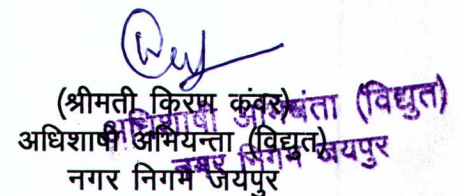 (श्रीमती किरण कंवर)
अधिशाषी अभियन्ता (विद्युत)
नगर निगम जयपुर
अधिशाषी अभियंता (विद्युत)
नगर निगम जयपुर